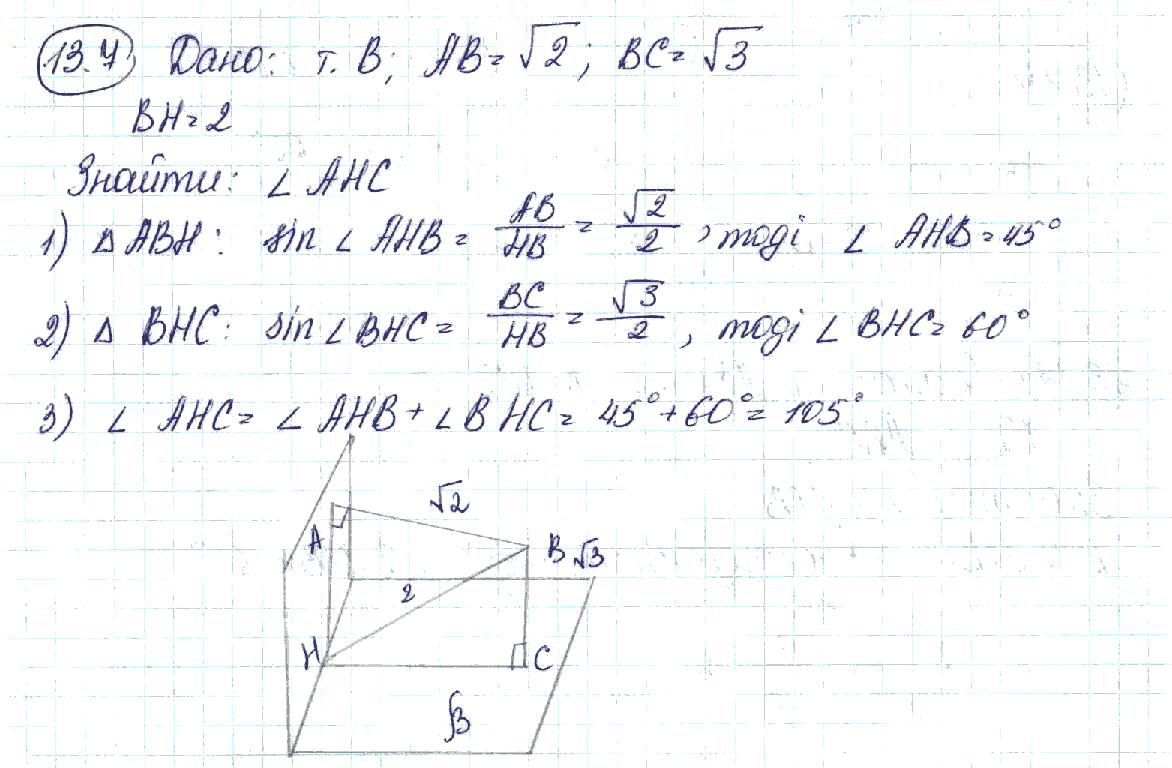 13.7 Дано: т. B; AB=√2; BC=√3
BH=2
Знайти: ∠ AHC
1) △ ABH: sin ∠ AHB = AB/HB = √2/2, тоді ∠ AHB=45°
2) △ BHC: sin ∠ BHC = BC/HB = √3/2, тоді ∠ BHC= 60°
3) ∠ AHC= ∠ AHB + ∠ B HC = 45°+60°= 105°
√2
A
B √3
2
H
C
β